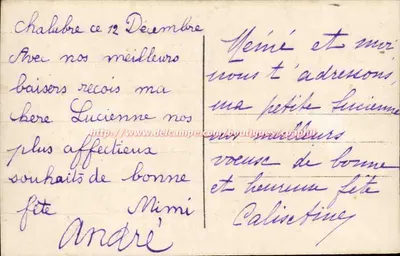 Chalabre ce 12 Décembre
Avec nos meilleurs
baisers reçois ma
chere Lucienne nos
plus affectieux
souhaits de bonne
fête Mimi
André
Mémé et moi
nous t'adressons,
ma petite Lucienne
nos meilleurs
voeux de bonne
et heureuse fête